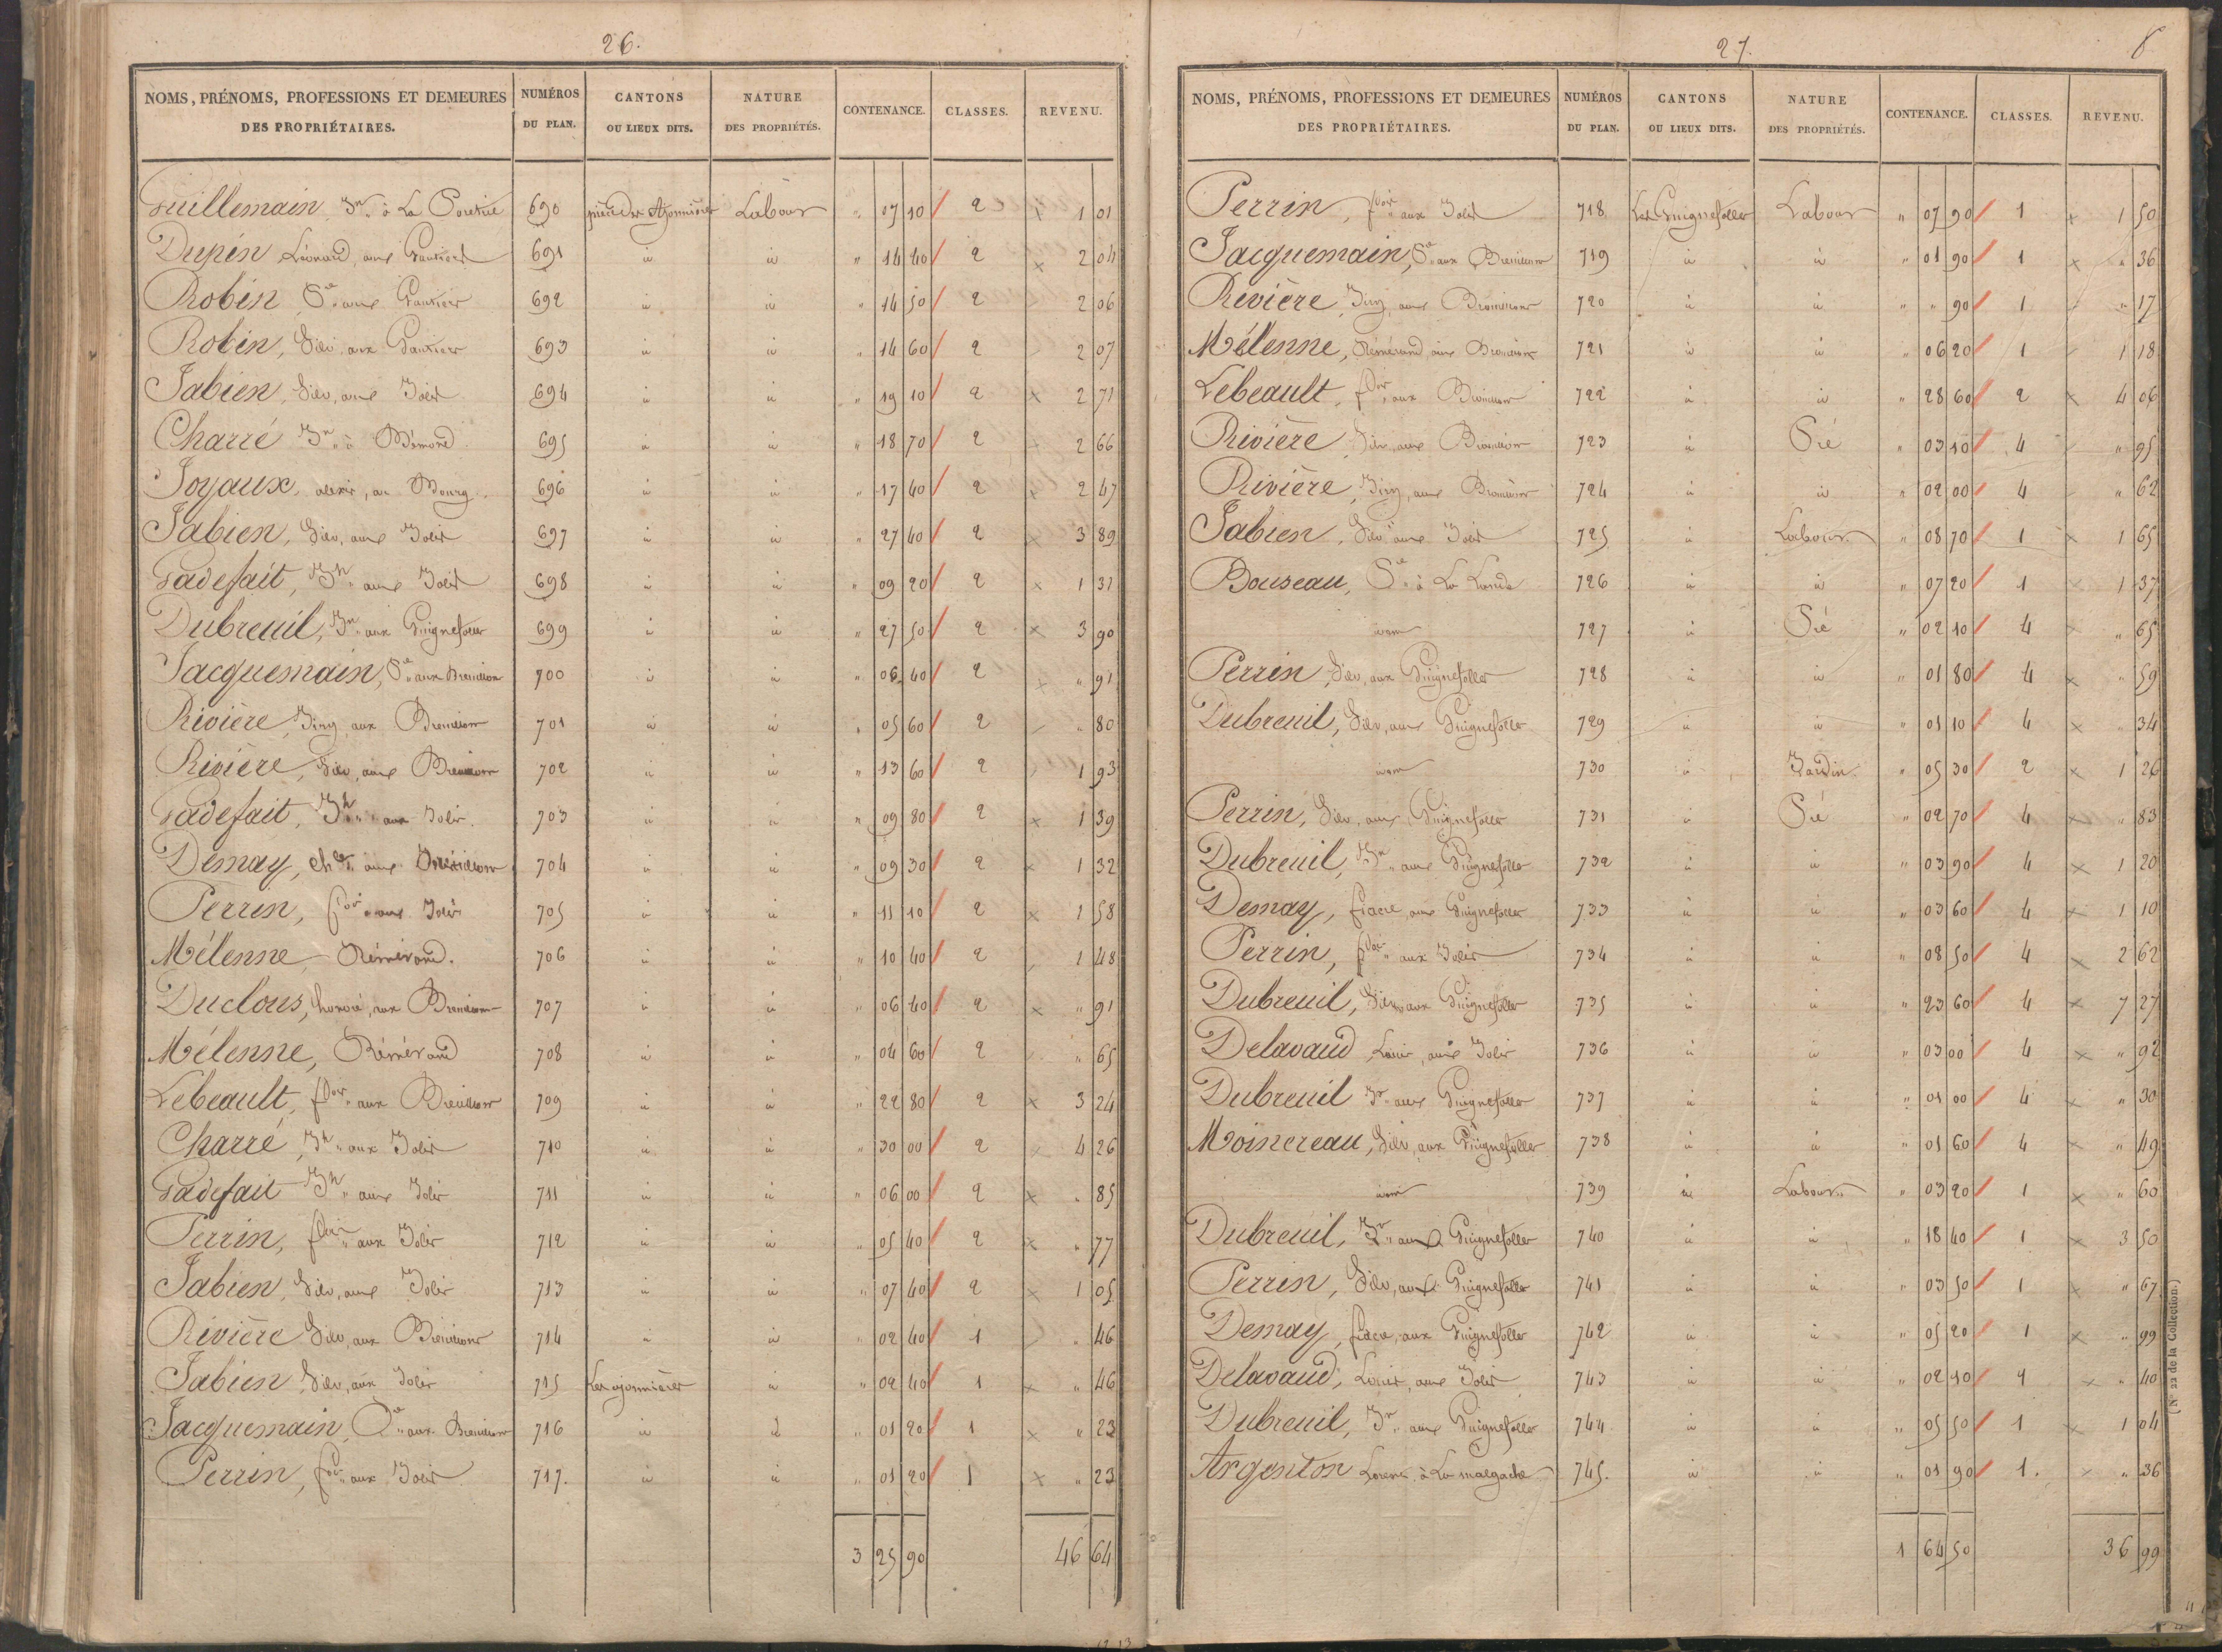 26.
NOMS, PRÉNOMS, PROFESSIONS ET DEMEURES DES PROPRIÉTAIRES. NUMÉROS DU PLAN. CANTONS OU LIEUX DITS. NATURE DES PROPRIÉTÉS. CONTENANCE. CLASSES. REVENU.
Guillemain, Jn à La 690 pièce des Ajonnières Labour " 07 10 2 x 1 01
Dupin Léonard, aux Gautiers 691 id id " 14 40 2 x 2 04
Robin, Ve aux Gautiers 692 id id " 14 50 2 2 06
Robin, Silv, aux Gautiers 693 id id " 14 60 2 2 07
Jabien, Silv, aux Jolis 694 id id " 19 10 2 x 2 71
Charré Jn à Bémond 695 id id " 18 70 2 2 66
Joyaux, alexis, au Bourg 696 id id " 17 40 2 x 2 47
Jabien, Silv, aux Jolis 697 id id " 27 40 2 x 3 89
Padefait, Jh aux Jolis 698 id id " 09 20 2 x 1 31
Dubreuil, Jn aux Guignefolles 699 id id " 27 50 2 x 3 90
Jacquemain, Ve aux 700 id id " 06 40 2 x " 91
Rivière, aux 701 id id " 05 60 2 " 80
Rivière, Silv, aux 702 id id " 13 60 2 1 93
Padefait, Jh aux Jolis 703 id id " 09 80 2 x 1 39
Demay, ch aux 704 id id " 09 30 2 x 1 32
Perrin, fçois aux Jolis 705 id id " 11 10 2 x 1 58
Mélenne, Rémérand. 706 id id " 10 40 2 1 48
Duclous, honoré, aux 707 id id " 06 40 2 x " 91
Mélenne, Rémérand 708 id id " 04 60 2 " 65
Lebeault, fçois aux 709 id id " 22 80 2 x 3 24
Charré, Jh aux Jolis 710 id id " 30 00 2 x 4 26
Padefait Jh aux Jolis 711 id id " 06 00 2 x " 85
Perrin, fçois aux Jolis 712 id id " 05 40 2 x " 77
Jabien, Silv, aux Jolis 713 id id " 07 40 2 x 1 05
Rivière Silv, aux 714 id id " 02 40 1 " 46
Jabien Silv, aux Jolis 715 Les ajonnières id " 02 40 1 x " 46
Jacquemain, Ve aux 716 id id " 01 20 1 x " 23
Perrin, fçois aux Jolis 717. id id " 01 20 1 x " 23
3 25 90 46 64
27. 8
NOMS, PRÉNOMS, PROFESSIONS ET DEMEURES DES PROPRIÉTAIRES. NUMÉROS DU PLAN. CANTONS OU LIEUX DITS. NATURE DES PROPRIÉTÉS. CONTENANCE. CLASSES. REVENU.
Perrin, fçois aux Jolis 718 Les Guignefolles Labour " 07 90 1 x 1 50
Jacquemain, Ve aux 719 id id " 01 90 1 x " 36
Rivière, aux 720 id id " " 90 1 " 17
Mélenne, Rémérand, aux 721 id id " 06 20 1 1 18
Lebeault, fçois, aux 722 id id " 28 60 2 x 4 06
Rivière Silv, aux 723 id Pré " 03 10 4 " 95
Rivière, aux 724 id id " 02 00 4 " 62
Jabien, Silv aux Jolis 725 id Labour " 08 70 1 x 1 65
Bouseau, Ve à La Lande 726 id id " 07 20 1 x 1 37
idem 727 id Pré " 02 10 4 x " 65
Perrin, Silv, aux Guignefolles 728 id id " 01 80 4 x " 59
Dubreuil, Silv, aux Guignefolles 729 id id " 01 10 4 x " 34
idem 730 id Jardin " 05 30 2 x 1 26
Perrin, Silv, aux Guignefolles 731 id Pré " 02 70 4 x " 83
Dubreuil, Jn aux Guignefolles 732 id id " 03 90 4 x 1 20
Demay, fiacre, aux Guignefolles 733 id id " 03 60 4 x 1 10
Perrin, fçois aux Jolis 734 id id " 08 50 4 x 2 62
Dubreuil, Silv, aux Guignefolles 735 id id " 23 60 4 x 7 27
Delavaud, Louis, aux Jolis 736 id id " 03 00 4 x " 92
Dubreuil Jn aux Guignefolles 737 id id " 01 00 4 x " 30
Moinereau, Silv, aux Guignefolles 738 id id " 01 60 4 x " 49
idem 739 id Labour " 03 20 1 x " 60
Dubreuil, Jn aux Guignefolles 740 id id " 18 40 1 x 3 50
Perrin, Silv, aux Guignefolles 741 id id " 03 50 1 x " 67
Demay, fiacre, aux Guignefolles 742 id id " 05 20 1 x " 99
Delavaud, Louis, aux Jolis 743 id id " 02 10 1 x " 40
Dubreuil, Jn aux Guignefolles 744 id id " 05 50 1 x 1 04
Argenton à La malgache 745. id id " 01 90 1. x " 36
1 64 50 36 99
(N° 22 de la Collection.)